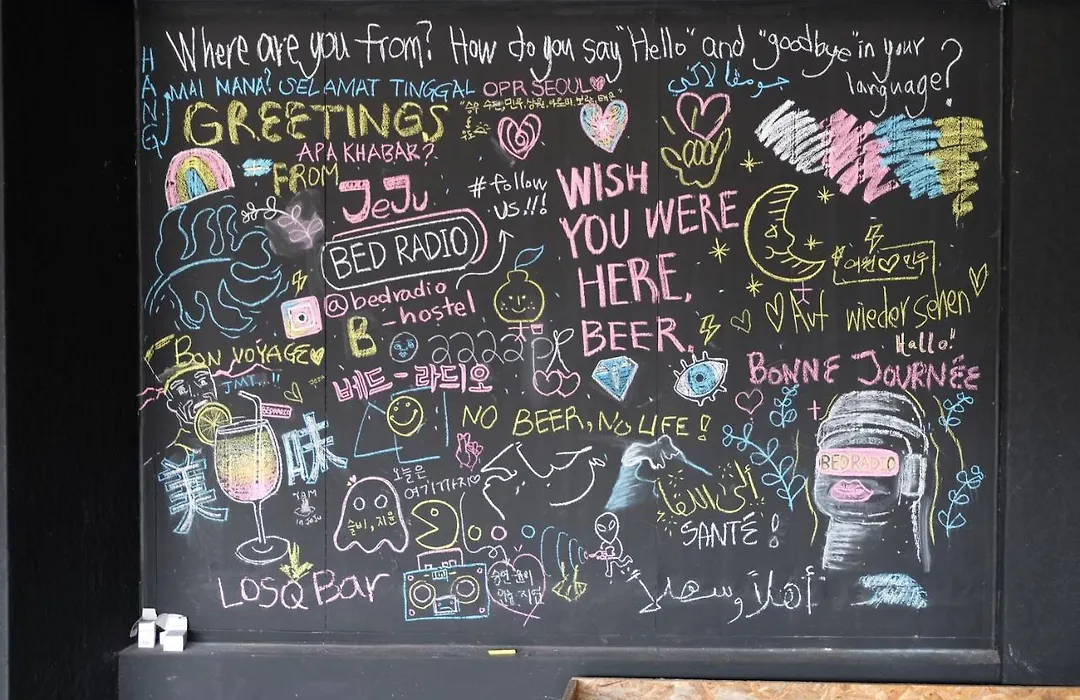 Where are you from? How do you say "Hello" and "goodbye" in your
language?
HANG
MAI MANA? SELAMAT TINGGAL
OPR SEOUL
GREETINGS
APA KHABAR?
FROM
JeJu
# follow
us!!!
BED RADIO
@bedradio
_hostel
WISH
YOU WERE
HERE,
BEER.
Auf wiedersehen
Hallo!
B
BON VOYAGE
JMT..!!
2222
베드-라디오
BONNE JOURNÉE
NO BEER, NO LIFE!
BEDRADIO
美味
오늘은
여기까지
مرحبا
إلى اللقاء
BEDRADIO
슬비, 지윤
in JeJu
SANTÉ!
LOSQ Bar
أهلاً وسهلاً